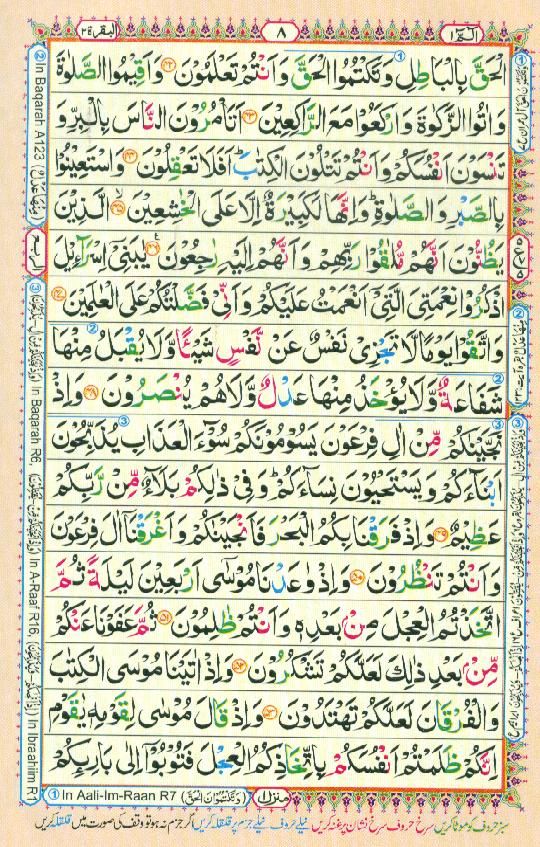 الٓمّٓ ١
٨
البقرة ٢
الْحَقَّ بِالْبَاطِلِ وَتَكْتُمُوا الْحَقَّ وَاَنْتُمْ تَعْلَمُوْنَ ﴿۴۲﴾ وَاَقِيْمُوا الصَّلٰوةَ
وَاٰتُوا الزَّكٰوةَ وَارْكَعُوْا مَعَ الرَّاكِعِيْنَ ﴿۴۳﴾ اَتَاْمُرُوْنَ النَّاسَ بِالْبِرِّ وَ
تَنْسَوْنَ اَنْفُسَكُمْ وَاَنْتُمْ تَتْلُوْنَ الْكِتٰبَ ؕ اَفَلَا تَعْقِلُوْنَ ﴿۴۴﴾ وَاسْتَعِيْنُوْا
بِالصَّبْرِ وَالصَّلٰوةِ ؕ وَاِنَّهَا لَكَبِيْرَةٌ اِلَّا عَلَى الْخٰشِعِيْنَ ﴿۴۵﴾ الَّذِيْنَ
يَظُنُّوْنَ اَنَّهُمْ مُّلٰقُوْا رَبِّهِمْ وَاَنَّهُمْ اِلَيْهِ رٰجِعُوْنَ ﴿۴۶﴾ يٰبَنِيْٓ اِسْرَآءِيْلَ
اذْكُرُوْا نِعْمَتِيَ الَّتِيْٓ اَنْعَمْتُ عَلَيْكُمْ وَاَنِّيْ فَضَّلْتُكُمْ عَلَى الْعٰلَمِيْنَ ﴿۴۷﴾
وَاتَّقُوْا يَوْمًا لَّا تَجْزِيْ نَفْسٌ عَنْ نَّفْسٍ شَيْـًٔا وَّلَا يُقْبَلُ مِنْهَا
شَفَاعَةٌ وَّلَا يُؤْخَذُ مِنْهَا عَدْلٌ وَّلَا هُمْ يُنْصَرُوْنَ ﴿۴۸﴾ وَاِذْ
نَجَّيْنٰكُمْ مِّنْ اٰلِ فِرْعَوْنَ يَسُوْمُوْنَكُمْ سُوْٓءَ الْعَذَابِ يُذَبِّحُوْنَ
اَبْنَآءَكُمْ وَيَسْتَحْيُوْنَ نِسَآءَكُمْ ؕ وَفِيْ ذٰلِكُمْ بَلَآءٌ مِّنْ رَّبِّكُمْ
عَظِيْمٌ ﴿۴۹﴾ وَاِذْ فَرَقْنَا بِكُمُ الْبَحْرَ فَاَنْجَيْنٰكُمْ وَاَغْرَقْنَآ اٰلَ فِرْعَوْنَ
وَاَنْتُمْ تَنْظُرُوْنَ ﴿۵۰﴾ وَاِذْ وٰعَدْنَا مُوْسٰٓى اَرْبَعِيْنَ لَيْلَةً ثُمَّ
اتَّخَذْتُمُ الْعِجْلَ مِنْۢ بَعْدِهٖ وَاَنْتُمْ ظٰلِمُوْنَ ﴿۵۱﴾ ثُمَّ عَفَوْنَا عَنْكُمْ
مِّنْۢ بَعْدِ ذٰلِكَ لَعَلَّكُمْ تَشْكُرُوْنَ ﴿۵۲﴾ وَاِذْ اٰتَيْنَا مُوْسَى الْكِتٰبَ
وَالْفُرْقَانَ لَعَلَّكُمْ تَهْتَدُوْنَ ﴿۵۳﴾ وَاِذْ قَالَ مُوْسٰى لِقَوْمِهٖ يٰقَوْمِ
اِنَّكُمْ ظَلَمْتُمْ اَنْفُسَكُمْ بِاتِّخَاذِكُمُ الْعِجْلَ فَتُوْبُوْٓا اِلٰى بَارِىِٕكُمْ
② In Baqarah A123 (مِنْهَا عَدْلٌ)
الربع
③ In Baqarah R6, In A-Raaf R16, In Ibraahiim R1
① In Aali-Im-Raan R7 (وَتَكْتُمُوْنَ الْحَقَّ)
منزل ١
سبز حروف کو موٹا کریں سرخ حروف سرخ نشان پر غنہ کریں نیلے حروف نیلے جزم پر قلقلہ کریں اگر جزم نہ ہو تو وقف کی صورت میں قلقلہ کریں